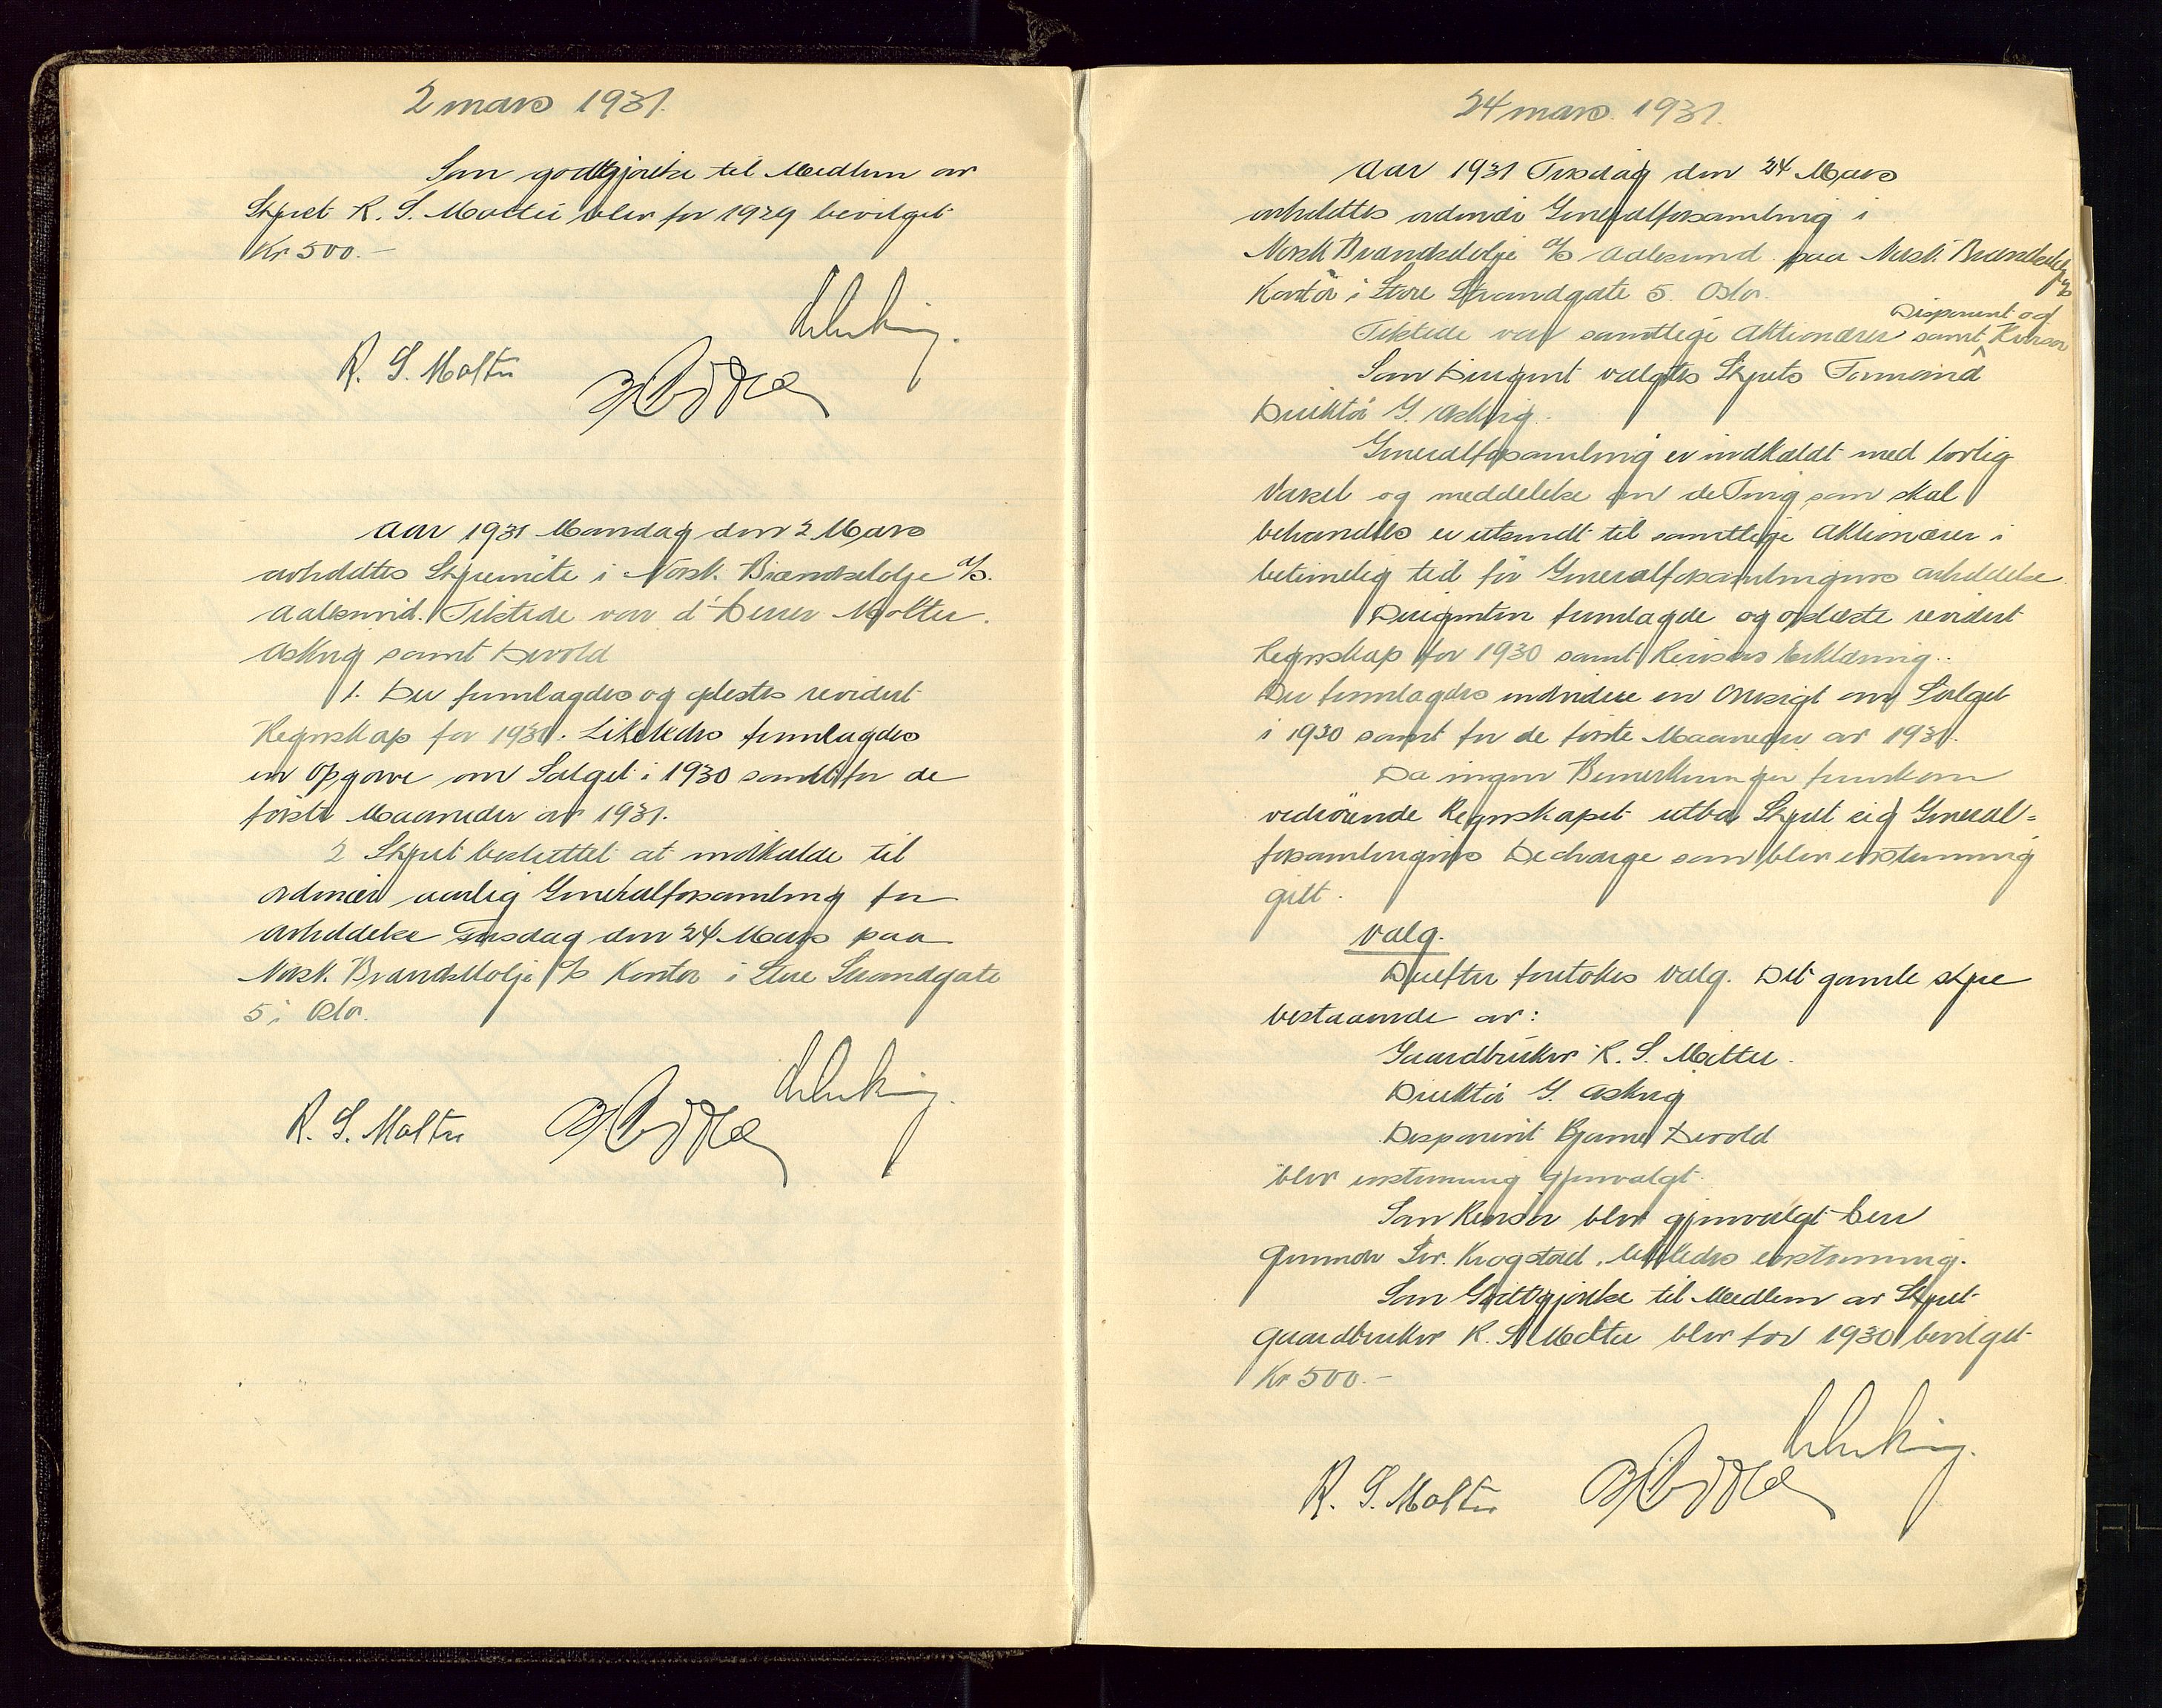 2 mars 1931.
Som godtgjørelse til Medlem av
Styret K. S. Molteu blev for 1929 bevilget
Kr 500.-
R. S. Molteu
Aar 1931 Mandag den 2 Mars
avholdtes Styremöte i Norsk Brændselolje A/S.
Aalesund. Tilstede var d'Herrer Molteu.
Askvig samt Devold
1. Der fremlagdes og oplestes revidert
Regnskap for 1930. Likeledes fremlagdes
en Opgave om Salget i 1930 samt for de
første Maaneder av 1931.
2 Styret besluttet at indkalde til
ordinær aarlig Generalforsamling for
avholdelse Tirsdag den 24 Mars paa
Norsk Brændselolje A/S Kontor i Store Strandgate
5 i Oslo.
R. S. Molteu
24 mars. 1931.
Aar 1931 Tirsdag den 24 Mars
avholdtes ordinær Generalforsamling i
Norsk Brændselolje A/S Aalesund paa Norsk Brændselolje A/S
Kontor i Store Strandgate 5. Oslo.
Disponent og
Tilstede var samtlige Aktionærer samt Revisor
Som Dirigent valgtes Styrets Formand
Direktör G. Askvig.
Generalforsamling er indkaldt med lovlig
Varsel og meddelelse om de Ting som skal
behandles er utsendt til samtlige Aktionærer i
betimelig tid för Generalforsamlingens avholdelse.
Dirigenten fremlagde og oplæste revidert
Regnskap for 1930 samt Revisors Erklæring.
Der fremlagdes endvidere en Oversigt om Salget
i 1930 samt for de förste Maaneder av 1931.
Da ingen Bemerkninger fremkom
vedrörende Regnskapet utbad Styret sig General=
forsamlingens Decharge som blev enstemmig
gitt.
Valg.
Derefter foretokes Valg. Det gamle styre
bestaaende av:
Gaardbruker K. S. Molteu.
Direktör G. Askvig
Disponent Bjarne Devold
blev enstemmig gjenvalgt.
Som Revisor blev gjenvalgt Herr
Gunnar Sv. Krogstad, likeledes enstemmig.
Som Godtgjörelse til Medlem av Styret
Gaardbruker K. S. Molteu blev for 1930 bevilget
Kr 500.-
R. S. Molteu